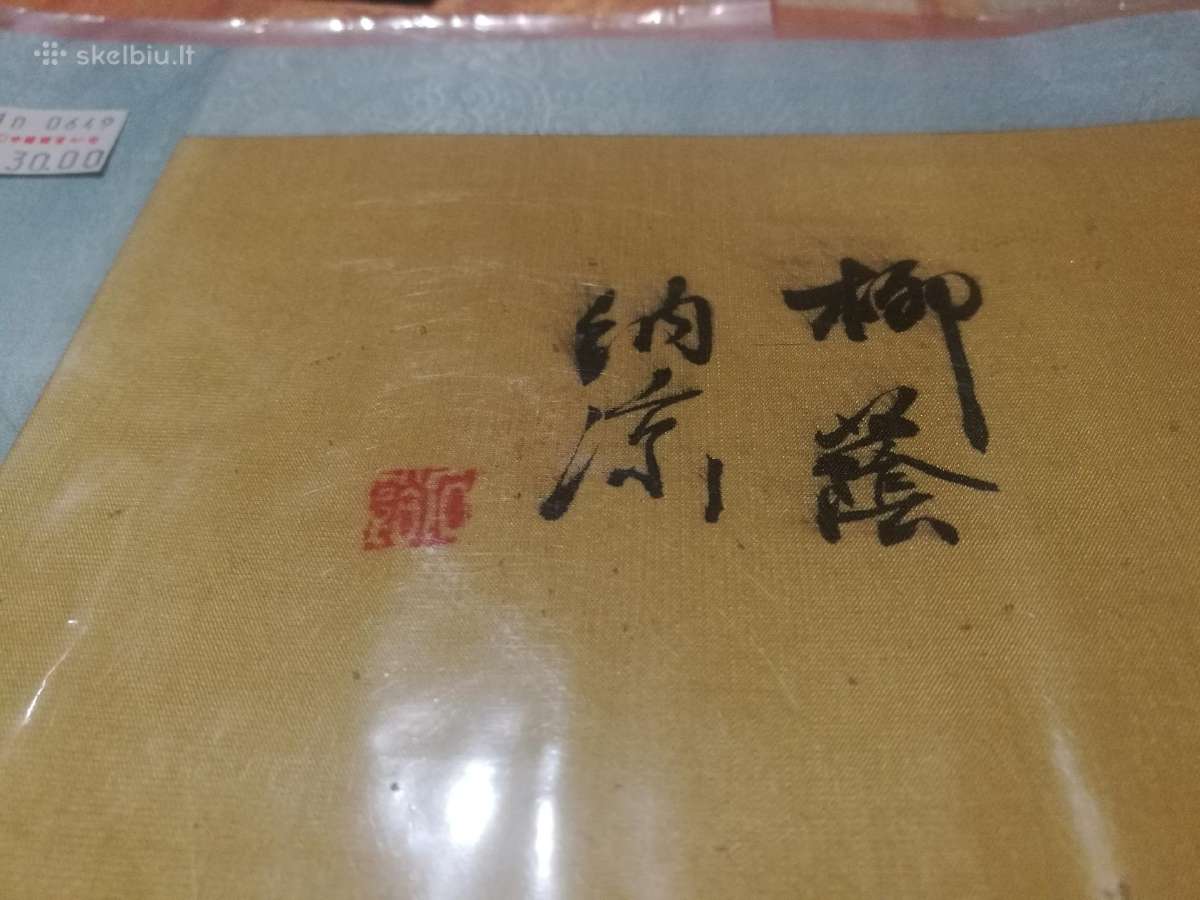 skelbiu.lt
0649
30.00
柳蔭
納涼